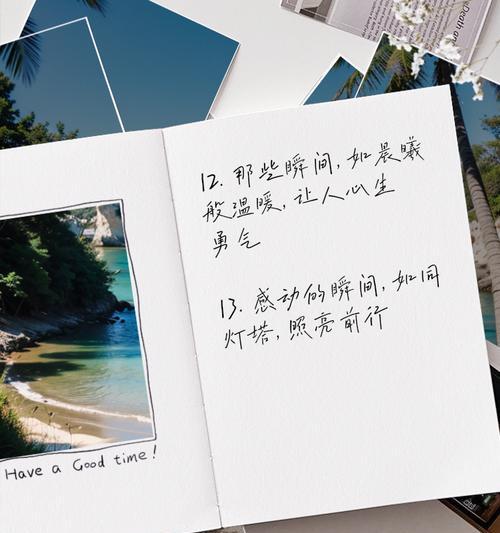 Death an
12. 那些瞬间, 如晨曦
般温暖, 让人心生
勇气
13. 感动的瞬间, 如同
灯塔, 照亮前行
Have a Good time!